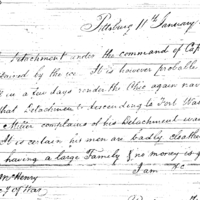 Pittsburg 11th January
Detachment under the command of Cap
tained by the ice. It is however probable
in a few days render the Ohio again nav
that Detachment to descend to Fort Was
Miller complains of his Detachment
It is certain his men are badly cloathed
having a large Family & no money is
I am &c
McHenry
of War